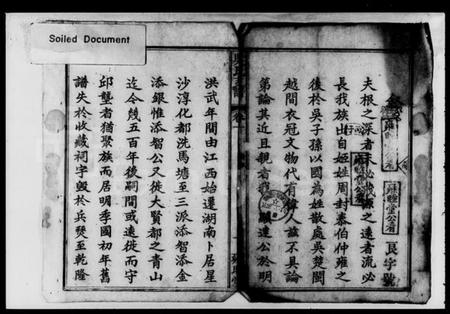 Soiled Document
良字號
夫根之深者末必茂源之遠者流必
長我族出自姬姓周封泰伯仲雍之
後於吳子孫以國為姓散處吳楚閩
越間衣冠文物代有偉人茲不具論
第論其近且親者顯達公於明
卷一
洪武年間由江西始遷湖南卜居星
沙淳化都洗馬塘至三派添智添金
添銀惟添智公又徙大賢都之青山
迄今幾五百年後嗣間或遠徙而守
邱壟者猶聚族而居明季國初年舊
譜失於收藏祠宇毀於兵燹至乾隆